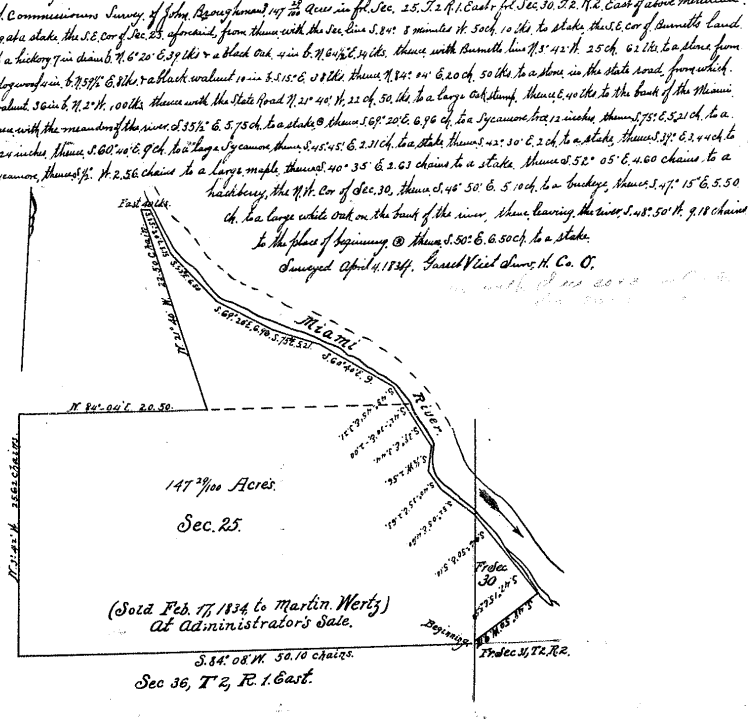 Commissioners Survey of John Broughman's 147 29/100 Acres in frl. Sec. 25, T.2 R.1. East & frl Sec. 30, T.2, R.2, East of above
at a stake, the S.E. Cor of Sec. 25, aforesaid, from thence with the Sec. line S. 84° 8 minutes W. 50ch. 10 lks. to stake, the S.E. Cor of Burnetts land
a hickory 7 in diam b. N. 6° 20' E. 39 lks & a black Oak, 4 in b. N 64½ E. 54 lks, thence with Burnetts line N. 3° 42' W. 25 ch. 62 lks to a stone, from
dogwood 4 in b. N 59½ E. 8 lks, & a black walnut 10 in S. 15° E, 38 lks. thence N. 84° 04' E, 20 ch. 50 lks to a stone, in the state road, from which
walnut 36 in b. N. 2° W. 100 lks thence with the State Road N. 21° 40' W. 22 ch. 50, lks, to a large Oak stump, thence E, 40 lks to the bank of the Miami
with the meanders of the river. S 35½° E. 5.75 ch. to a stake ⊗ thence S. 69° 20' E, 6.96 ch, to a Sycamore tree, 12 inches, thence S. 75° E. 5.21 ch. to a
24 inches, thence S. 60° 40' E, 9 ch. to a large Sycamore, thence S. 45° 45' E. 2.31 ch. to a stake, thence S. 42° 30' E, 2 ch to a stake, thence S. 39° E. 3.44 ch to
thence S ½° W. 2.56 chains to a large maple, thence S. 40° 35' E. 2.63 chains to a stake. thence S. 52° 05' E. 4.60 chains. to a
hackberry, the N.W. Cor of Sec. 30, thence S. 46° 50' E. 5.10 ch, to a buckeye, thence S. 47° 15' E, 5.50
ch. to a large white Oak on the bank of the river, thence, leaving the river, S. 48° 50' W. 9.18 chains
to the place of beginning. ⊗ thence S. 50° E. 6.50 ch. to a stake.
Surveyed April 4, 1834. Garret Vliet Surv, H. Co. O,
East 40 lks.
N. 21° 40' W. 22.50 Chains
S. 69° 20' E, 6.96. S. 75° E. 5.21
S. 60° 40' E. 9.
Miami
River.
N. 84°-04' E. 20.50.
S. 45° 45' E. 2.31.
S. 42°-30' E. 2.00
S. 39° E. 3.44.
S. ½ W. 2.56.
S. 40° 35' E. 2.63.
S. 52° 05' E. 4.60
S. 46° 50' E. 5.10.
N. 3° 42' W. 25.62 chains.
147 29/100 Acres.
Sec. 25.
Fr. Sec
30
S. 47° 15' E. 5.50
S. 48° 50' W. 9.18
(Sold Feb. 17, 1834, to Martin. Wertz)
At Administrator's Sale.
Beginning
S. 84° 08' W. 50.10 chains.
Fr. Sec 31, T2, R.2.
Sec 36, T 2, R. 1. East.